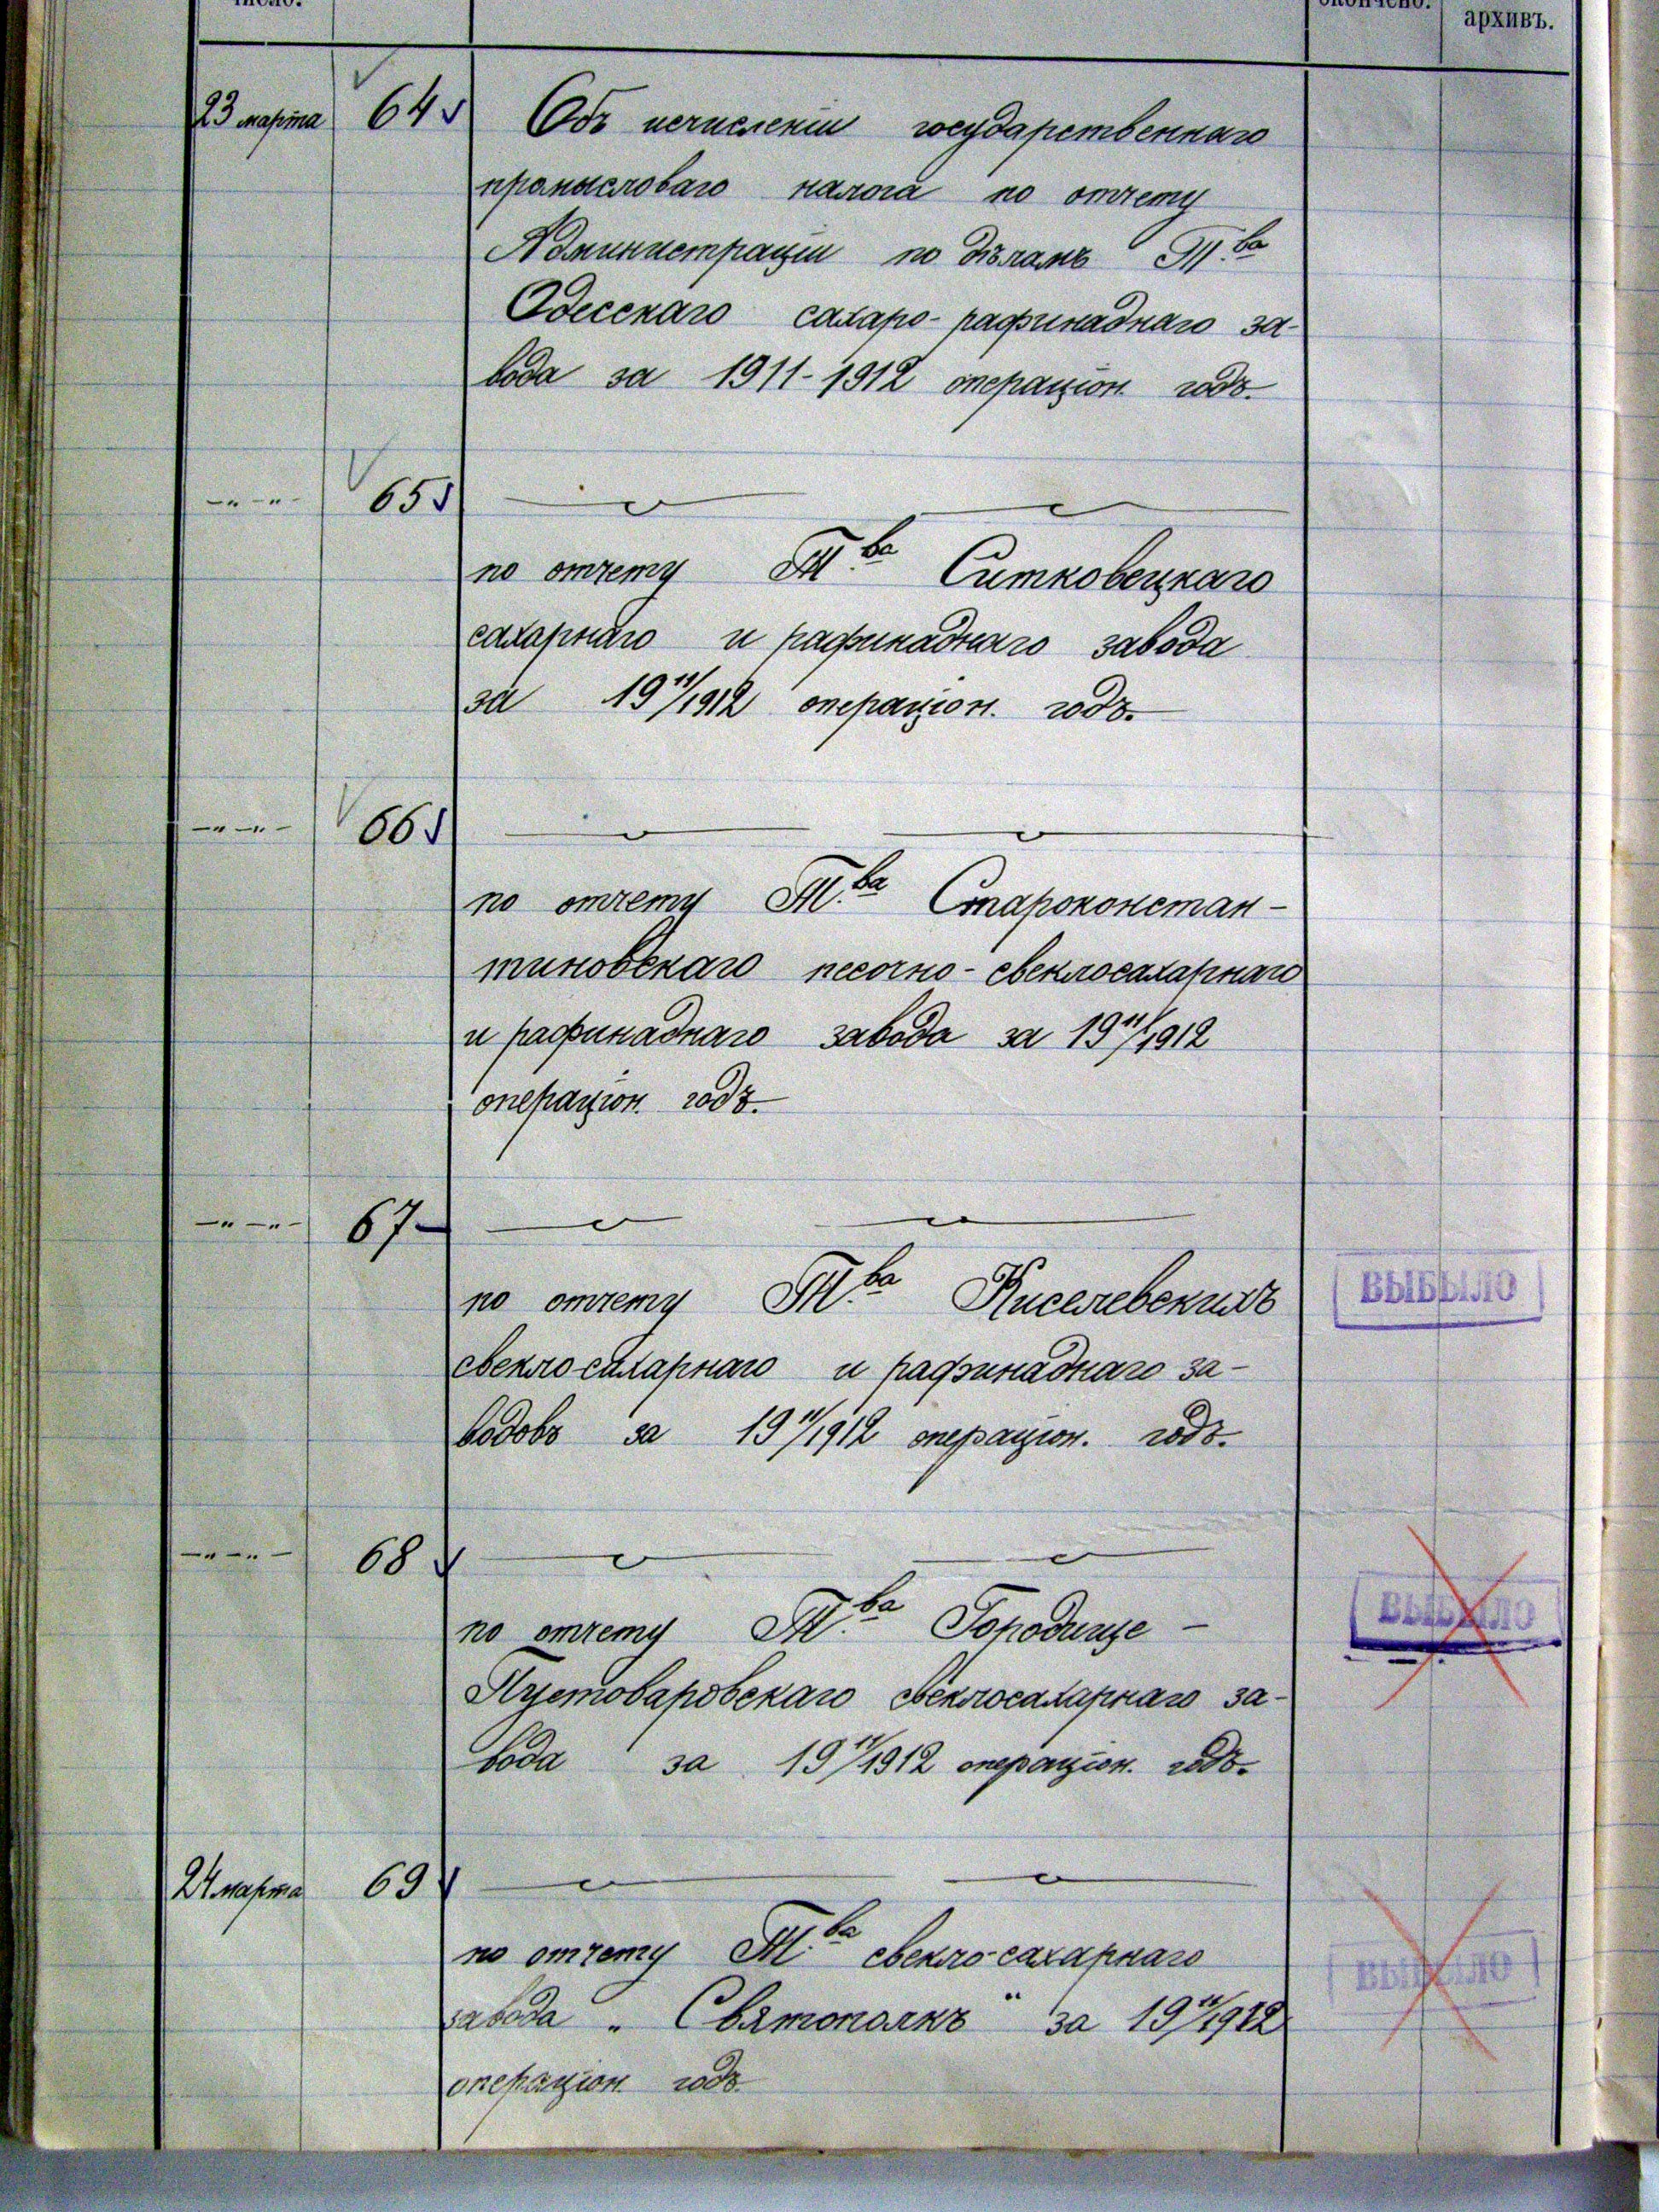 архивъ.
23 марта 64 Объ исчисленіи государственнаго
промысловаго налога по отчету
Администраціи по дѣламъ Т.ва
Одесскаго сахаро-рафинаднаго за-
вода за 1911-1912 операціон. годъ.
-"-"- 65
по отчету Т.ва Ситковецкаго
сахарнаго и рафинаднаго завода
за 1911/1912 операціон. годъ.
-"-"- 66
по отчету Т.ва Староконстан-
тиновскаго песочно-свеклосахарнаго
и рафинаднаго завода за 1911/1912
операціон. годъ.
-"-"- 67
по отчету Т.ва Киселевскихъ
ВЫБЫЛО
свекло-сахарнаго и рафинаднаго за-
водовъ за 1911/1912 операціон. годъ.
-"-"- 68
по отчету Т.ва Городище-
ВЫБЫЛО
Пустоваровскаго свеклосахарнаго за-
вода за 1911/1912 операціон. годъ.
24 марта 69
по отчету Т.ва свекло-сахарнаго
ВЫБЫЛО
завода „Святополкъ" за 1911/1912
операціон. годъ.